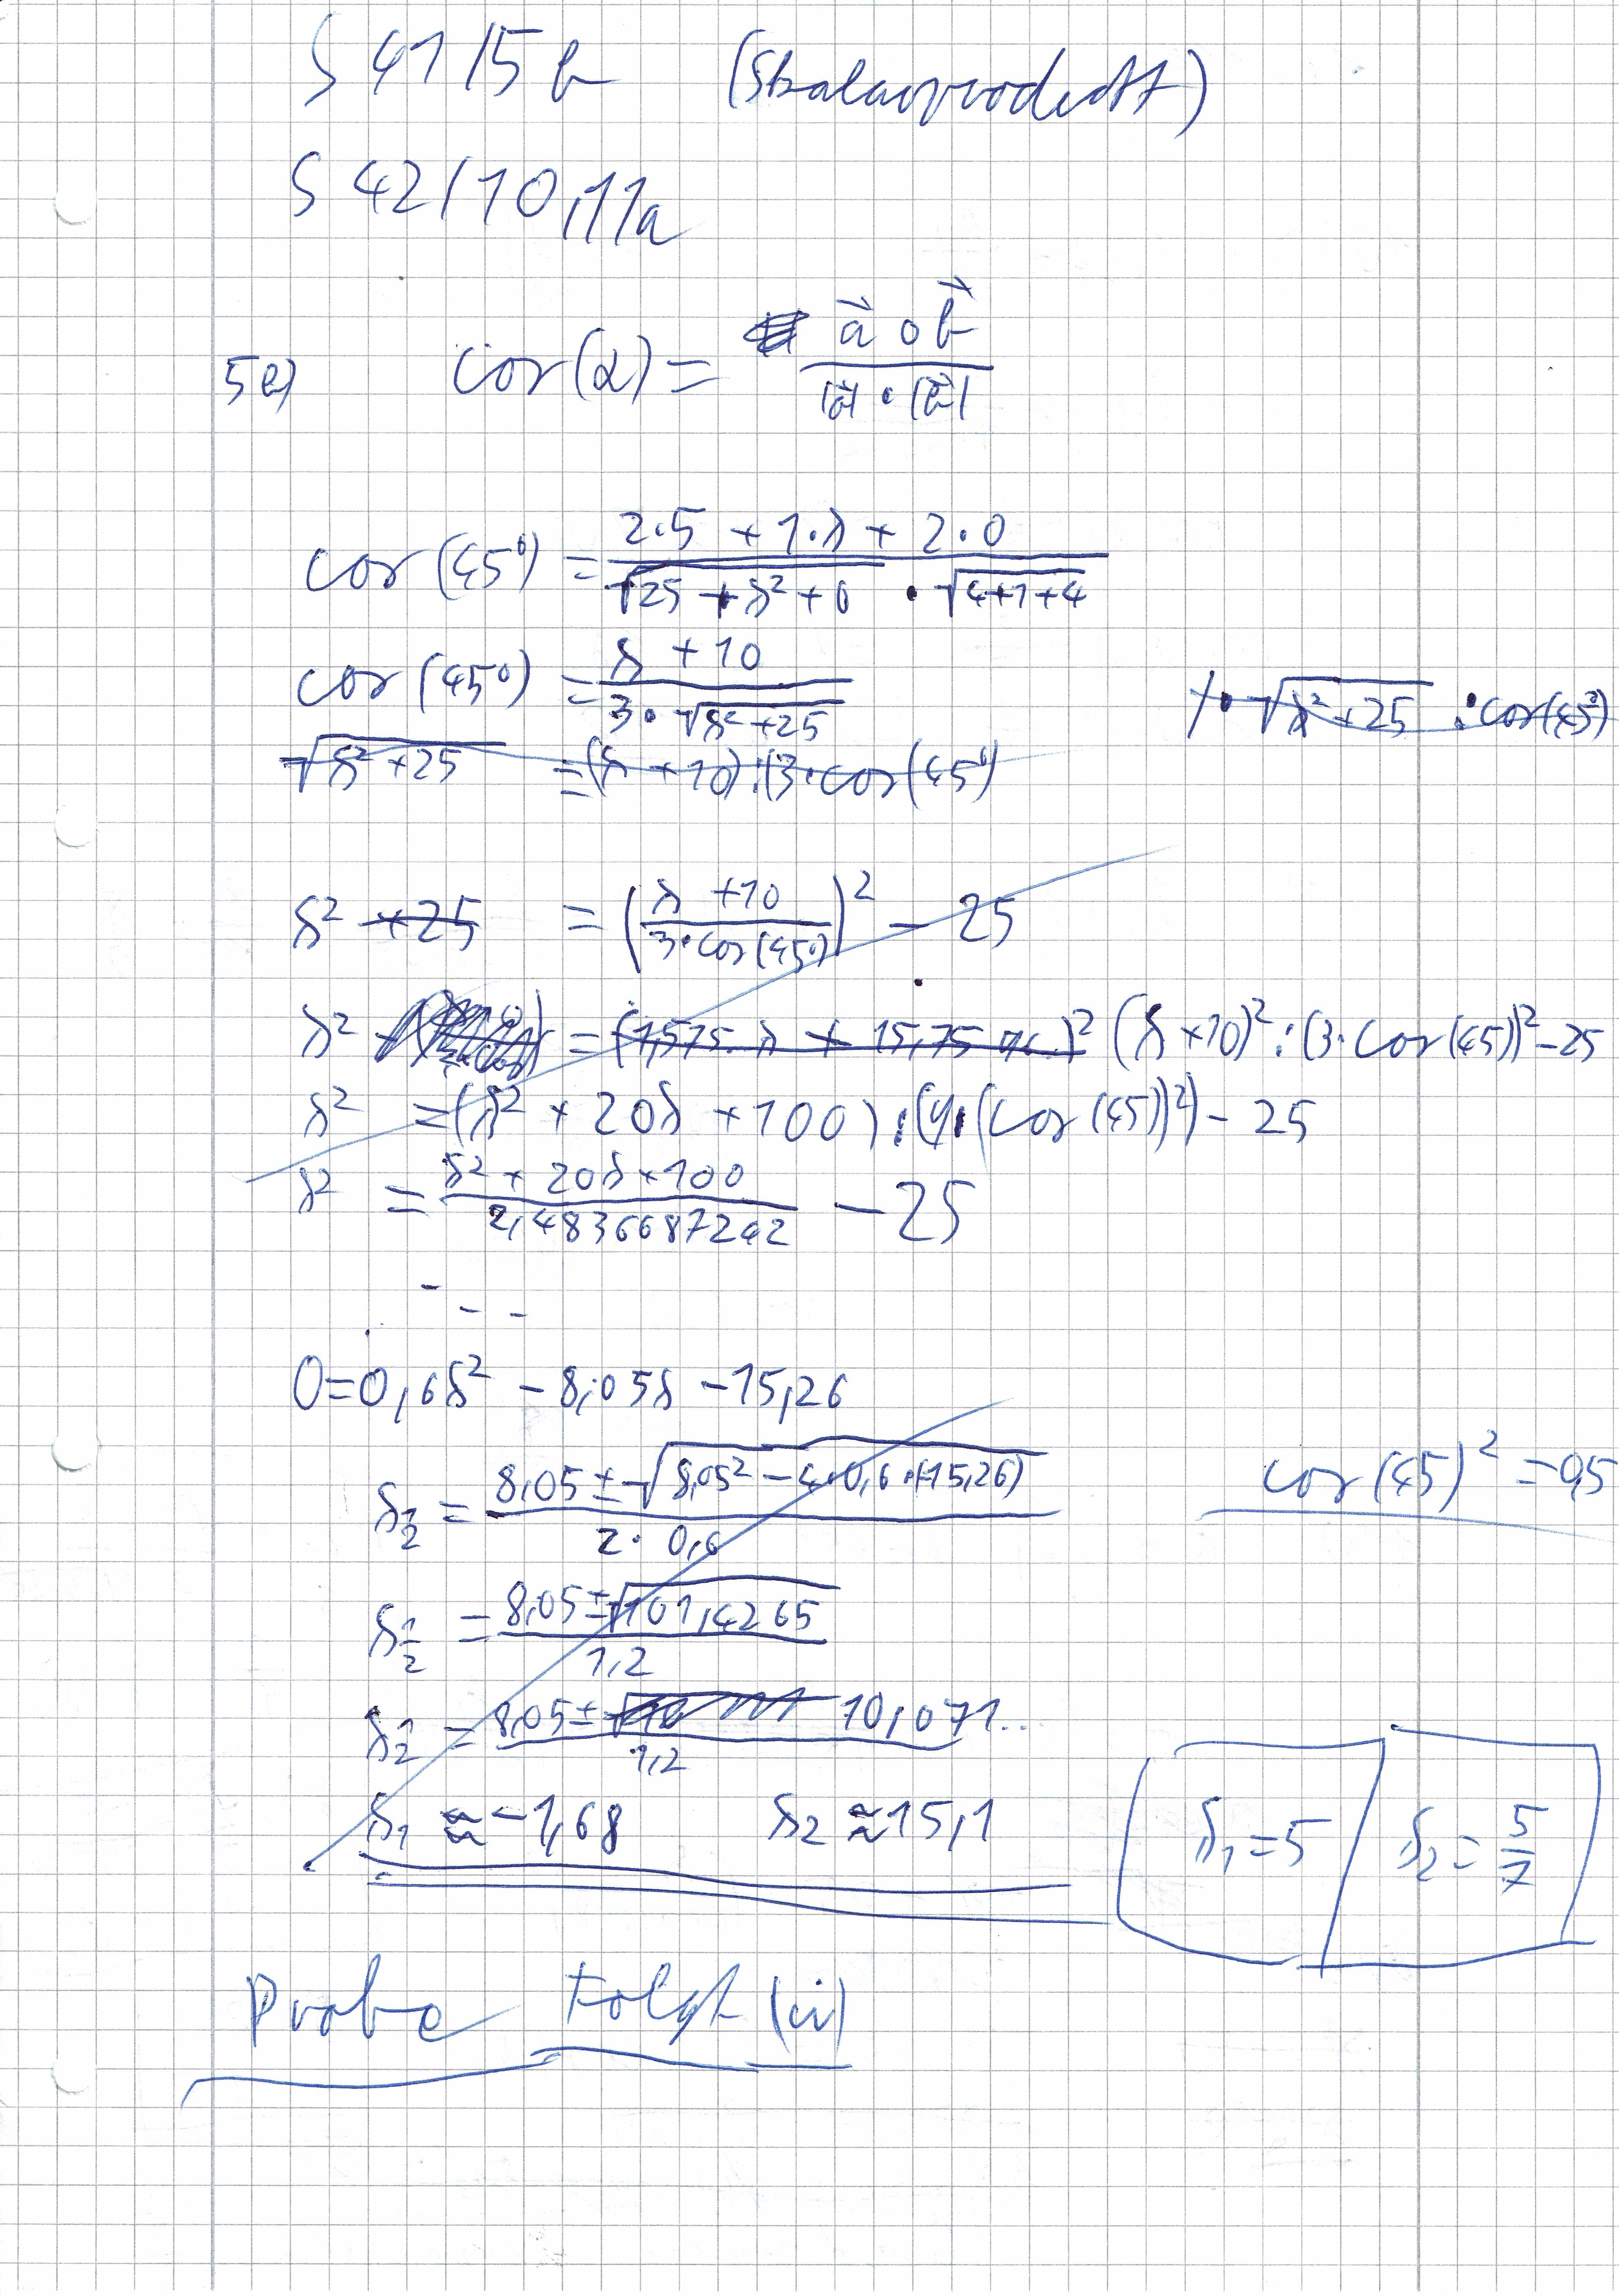 S 41/5b (Skalarprodukt)
S 42/10,11a
5e) cos(α) = a⃗ ∘ b⃗ / |a⃗| · |b⃗|
cos(45°) = 2·5 + 1·λ + 2·0 / √25 + λ² + 0 · √4+1+4
cos(45°) = λ + 10 / 3·√λ²+25 /·√λ²+25 :cos(45°)
√λ²+25 = (λ + 10):(3·cos(45°)
λ² +25 = (λ +10 / 3·cos(45°))² − 25
λ² = (1,575 λ + 15,75 )² (λ+10)² : (3·cos(45))² −25
λ² = (λ² + 20λ + 100) : (9·(cos(45))²) − 25
λ² = λ² + 20λ + 100 / 2,4836687242 − 25
- - -
0=0,6λ² − 8,05λ −15,26
λ1/2 = 8,05 ± √8,05² − 4·0,6·(−15,26) / 2·0,6 cos(45)² = 0,5
λ1/2 = 8,05 ± √101,4265 / 1,2
λ1/2 = 8,05 ± 10,071... / 1,2
λ1 ≈ −1,68 λ2 ≈ 15,1 λ1 = 5 / λ2 = 5/7
Probe folgt (in)